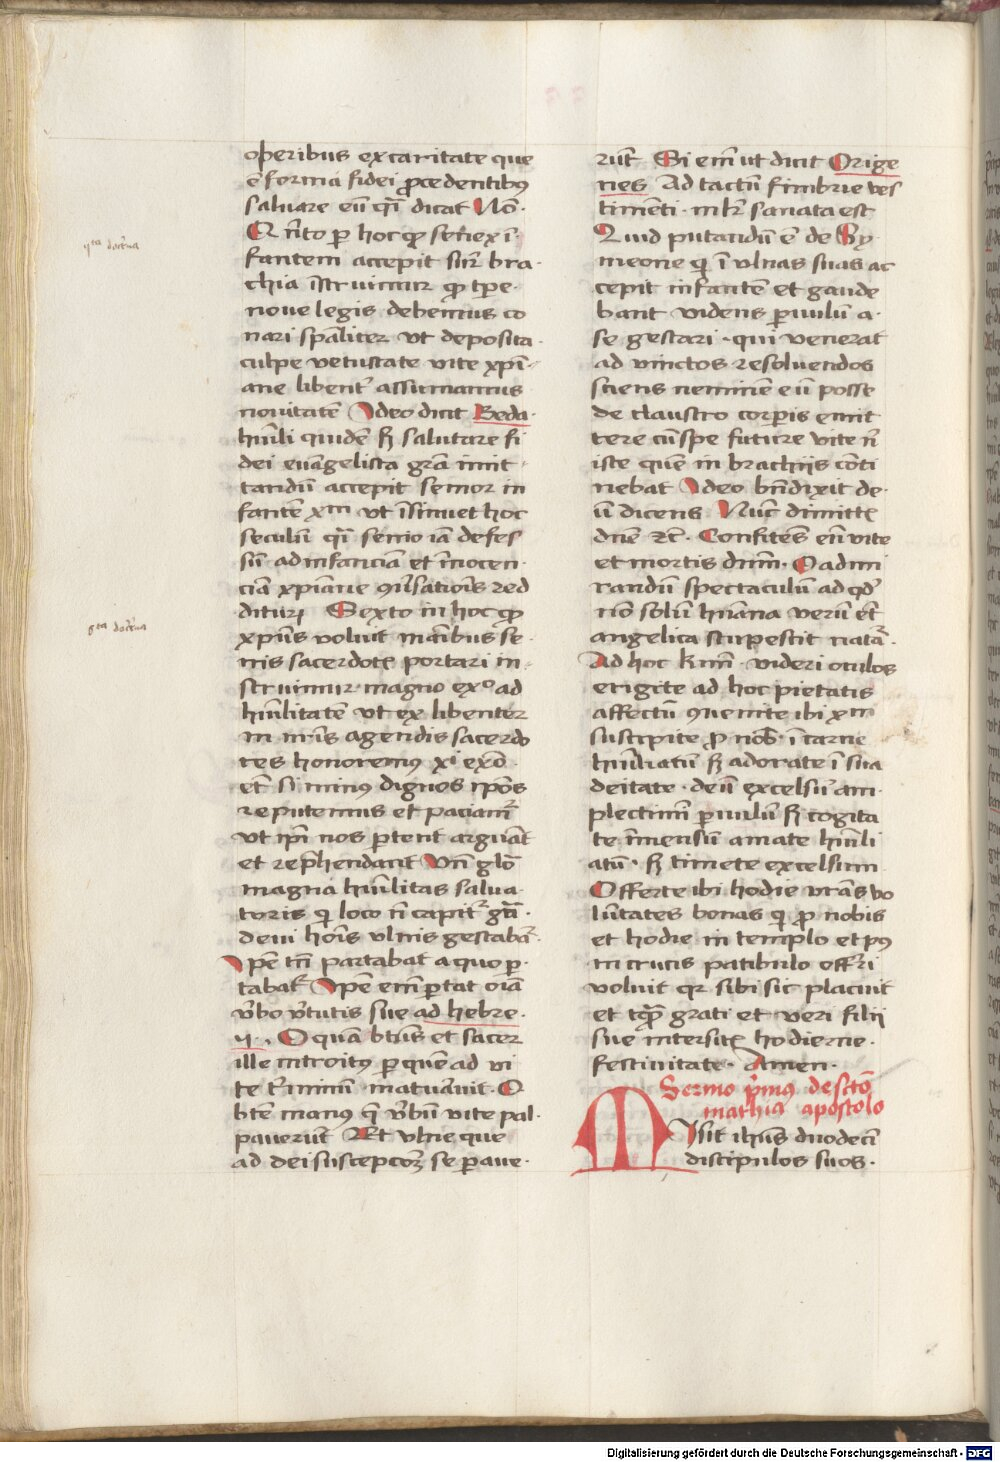 operibus ex caritate que
ē forma fidei ꝓcedentibꝰ
saluare eū qͣi dicat Nō·
Qͥnto ꝑ hoc ꝙ senex ī·
fantem accepit sur̄ bra·
chia īstruimur ꝙ tꝑe·
noue legis debemus co
nari spāliter vt deposita·
culpe vetustate vite xp̄i·
ane libent̄ assumamus
nouitatē Ideo dicit Beda·
hūili quidē sꝫ salutare fi
dei euāgelista grām imi
tandū accepit semor in
fantē xm vt īsinuet hoc
seculū qͣi senio iā defes
sū ad infanciā et īnocen·
ciā xp̄iane ꝯūsatiōis red
diturꝫ Sexto in hoc ꝙ
xp̄us voluit manibus se·
nis sacerdotꝭ portari in·
struimur magno exº ad
hūilitatē vt ex libenter
in nr̄is agendis sacerdo
tes honoremꝰ xi exō·
et si minꝰ dignos ip̄os
reputemus et paciamr̄
vt ip̄i nos ꝑtent arguāt
et rep̄hendant Vn̄ glō
magna hūilitas salua·
toris qͥ loco n̄ capit̄ gr̄ā·
deui hois vlnis gestabat̄·
Ipē tn̄ partabat a quo ꝑ·
tabat̄ Ipē em̄ ꝑtat oīa
v̄bo v̄tutis sue ad hebre·
ij·, O quā btūs et sacer
ille introitꝰ ꝑ quē ad vi
te t̄minū maturauit· O
btē manꝰ q̄ v̄bū vite pal·
pauerūt Et vlne que
ad dei suscepcoꝫ se ꝑaue·
rūt Si em̄ ut dicit Orige
nes Ad tactū fimbrie ves
timēti· mlr̄ sanata est
Quid putandū ē de Sy·
meone qͥ ī vlnas suas ac
cepit infantē et gaude
bant videns ꝑuulū a·
se gestari· qui venerat
ad vinctos resoluendos
sciens neminē eū posse
de claustro corꝑis emit
tere cū spe future vite n̄
iste quē in brachijs cōti
nebat Ideo bn̄dixit de·
ū dicens Nūc dimittꝭ
dnē ⁊c̄· Confitēs em̄ vite
et mortis dnm̄· O admi
randū spectaculū ad qd̄
nō solū hūana verū et
angelica stupescit natā·
Ad hoc kmi· videri oculos
erigite ad hoc pietatis
affectū ꝯuenite ibi xm
suscipite ꝓ nob̄· ī carne
hūiliatū sꝫ adorate ī sua
deitate· deū excelsū am·
plectimī ꝑuulū sꝫ cogita
te īmensū amate hūili
atū· sꝫ timete excelsum
Offerte ibi hodie vrās vo
lūtates bonas qͥ ꝓ nobis
et hodie in templo et pꝰ
in crucis patibulo offerri
voluit qꝛ sibi sic placuit
et tqͣꝫ grati et veri filij
sue intersitꝭ hodierne·
festiuitate· Amen·
Sermo p̄mꝰ de scto
mathia apostolo
Misit ihūs duodecī
discipulos suos·
qͥⁿta doctrina
6ta doctrina
Digitalisierung gefördert durch die Deutsche Forschungsgemeinschaft - DFG